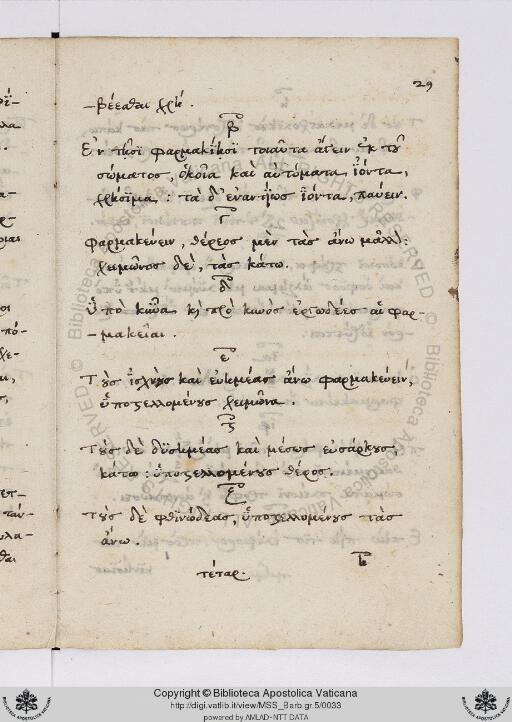 29
–βέεσθαι χρή.
β
Ἐν τῇσι φαρμακίῃσι τοιαῦτα ἄγειν ἐκ τοῦ
σώματος, ὁκοῖα καὶ αὐτόματα ἰόντα,
χρήσιμα : τὰ δ' ἐναντίως ἰόντα, παύειν.
γ
φαρμακεύειν, θέρεος μὲν τὰς ἄνω μᾶλλ:
χειμῶνος δὲ, τὰς κάτω.
δ
ὑπὸ κύνα κὴ πρὸ κυνὸς ἐργώδεες αἱ φαρ–
–μακεῖαι.
ε
Τοὺς ἰσχνοὺς καὶ εὐημέας ἄνω φαρμακεύειν,
ὑποστελλομένους χειμῶνα.
ϛ
Τοὺς δὲ δυσημέας καὶ μέσως εὐσάρκους
κάτω : ὑποστελλομένους θέρος.
ζ
τοὺς δὲ φθινώδεας, ὑποστελλομένους τὰς
ἄνω.
η
τέταρ.
Copyright © Biblioteca Apostolica Vaticana
http://digi.vatlib.it/view/MSS_Barb.gr.5/0033
powered by AMLAD-NTT DATA